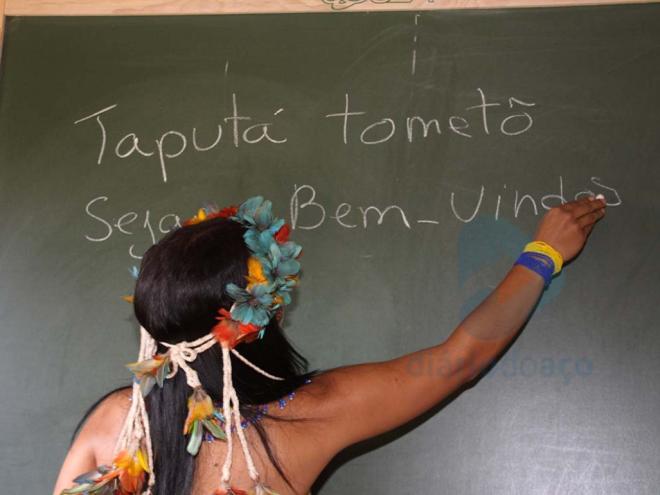 Taputá tometõ
Seja Bem-Vindos
diário do aço